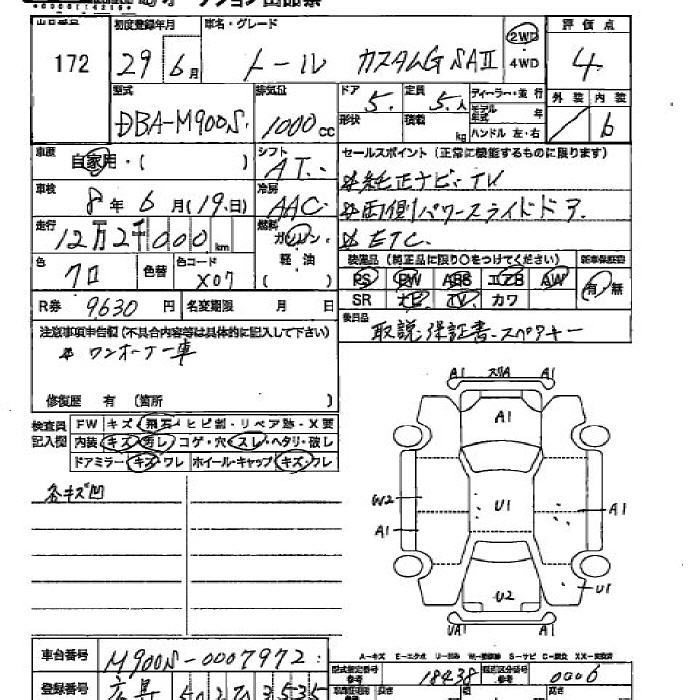 172
初度登録年月
車名・グレード
評価点
29年6月
トール カスタムG SAⅡ
2WD
4WD
4
型式
排気量
ドア
定員
ディーラー・並行
外装 内装
DBA-M900S
1000cc
5
5人
モデル年式 年
形状
積載 kg
ハンドル 左・右
6
車歴
自家用・( )
シフト
AT
セールスポイント (正常に機能するものに限ります)
車検
8年6月(19日)
冷房
AAC
純正ナビ・TV
両側パワースライドドア
ETC
走行
12万2千000km
燃料
ガソリン・軽油
( )
装備品 (純正品に限り○をつけてください)
新車保証書
色
クロ
色替
色コード
X07
PS PW ABS エアB AW
有/無
SR ナビ TV カワ
R券 9630円
名変期限 月 日
後日品
取説・保証書・スペアキー
注意事項申告欄 (不具合内容等は具体的に記入して下さい)
ワンオーナー車
修復歴 有 (箇所 )
検査員記入欄
FW キズ・飛石・ヒビ割・リペア跡・X要
内装 キズ・汚レ・コゲ・穴・スレ・ヘタリ・破レ
ドアミラー キズ・ワレ ホイール・キャップ キズ・フレ
各キズ凹
A1 スリA A1
A1
W2
U1
A1
A1
U1
U2
UA1 A1
車台番号 M900S-0007972
型式指定番号 18438
類別区分番号 0006
登録番号